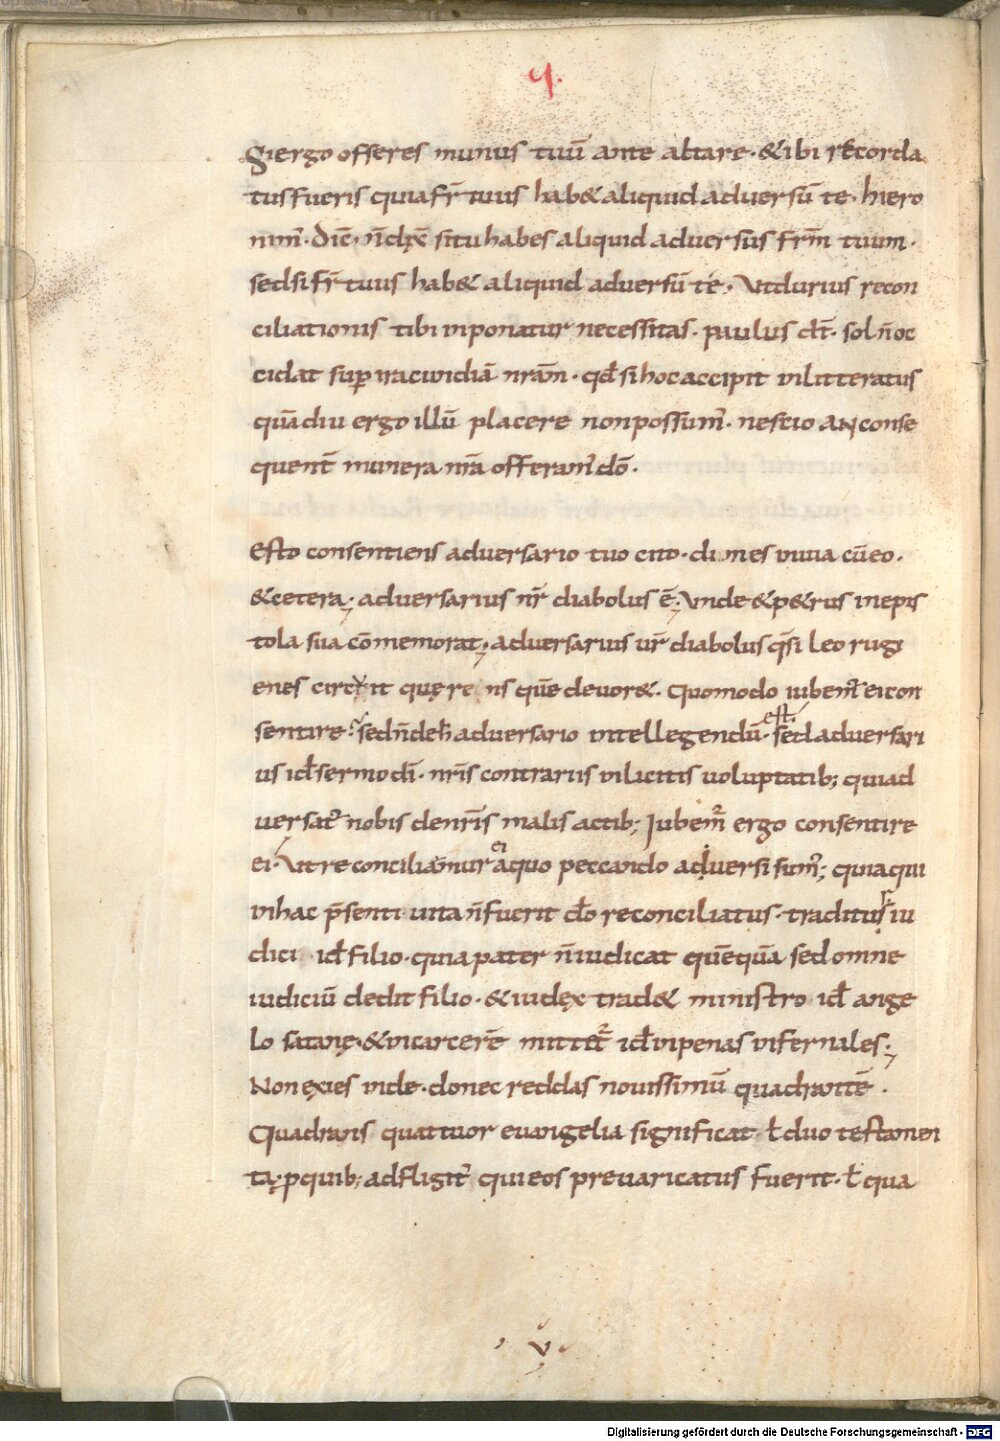 q.
Si ergo offeres munus tuū ante altare · & ibi recorda
tus fueris quia fr̄ tuus hab& aliquid adversū te · hiero
nim̄ · Dic̄ · n̄ dix̄ si tu habes aliquid adversus frm̄ tuum ·
sed si fr̄ tuus hab& aliquid adversū te · Ut durius recon
ciliationis tibi inponatur necessitas · paulus dt̄ · sol n̄ oc
cidat sup iracundiā nrām · qđ si hoc accipit inlitteratus
quādiu ergo illū placere non possum̄ · nescio an conse
quent̄ munera nrā offeram̄ dō ·
Esto consentiens adversario tuo cito · dum es in uia cū eo ·
& cetera · adversarius nr̄ diabolus ē · Unde & p&rus in epis
tola sua cōmemorat · adversarius ur̄ diabolus qsi leo rugi
ens circuit quęrens quē devor& · Quomodo iubem̄ ei con
sentire sed n̄ de h̄ adversario intellegendū · est · sed adversari
us id sermo dī · nrīs contrarius inlicitis voluptatib; qui ad
versat̄ nobis de nrīs malis actib; Iubem̄ ergo consentire
ei · Ut reconciliamur ei a quo peccando adversi sum̄; quia qui
in hac p̄senti uita n̄ fuerit dō reconciliatus · traditur iu
dici id filio · quia pater n̄ iudicat quēquā sed omne
iudiciū dedit filio · & iudęx trad& ministro id ange
lo satanę · & in carcerē mittet̄ id in penas infernales ·
Non ęxies inde · donec reddas novissimū quadrantē ·
Quadrans quattuor evangelia significat ł duo testamen
ta · p quib; adfligit̄ qui eos prevaricatus fuerit · ł qua
v
Digitalisierung gefördert durch die Deutsche Forschungsgemeinschaft - DFG